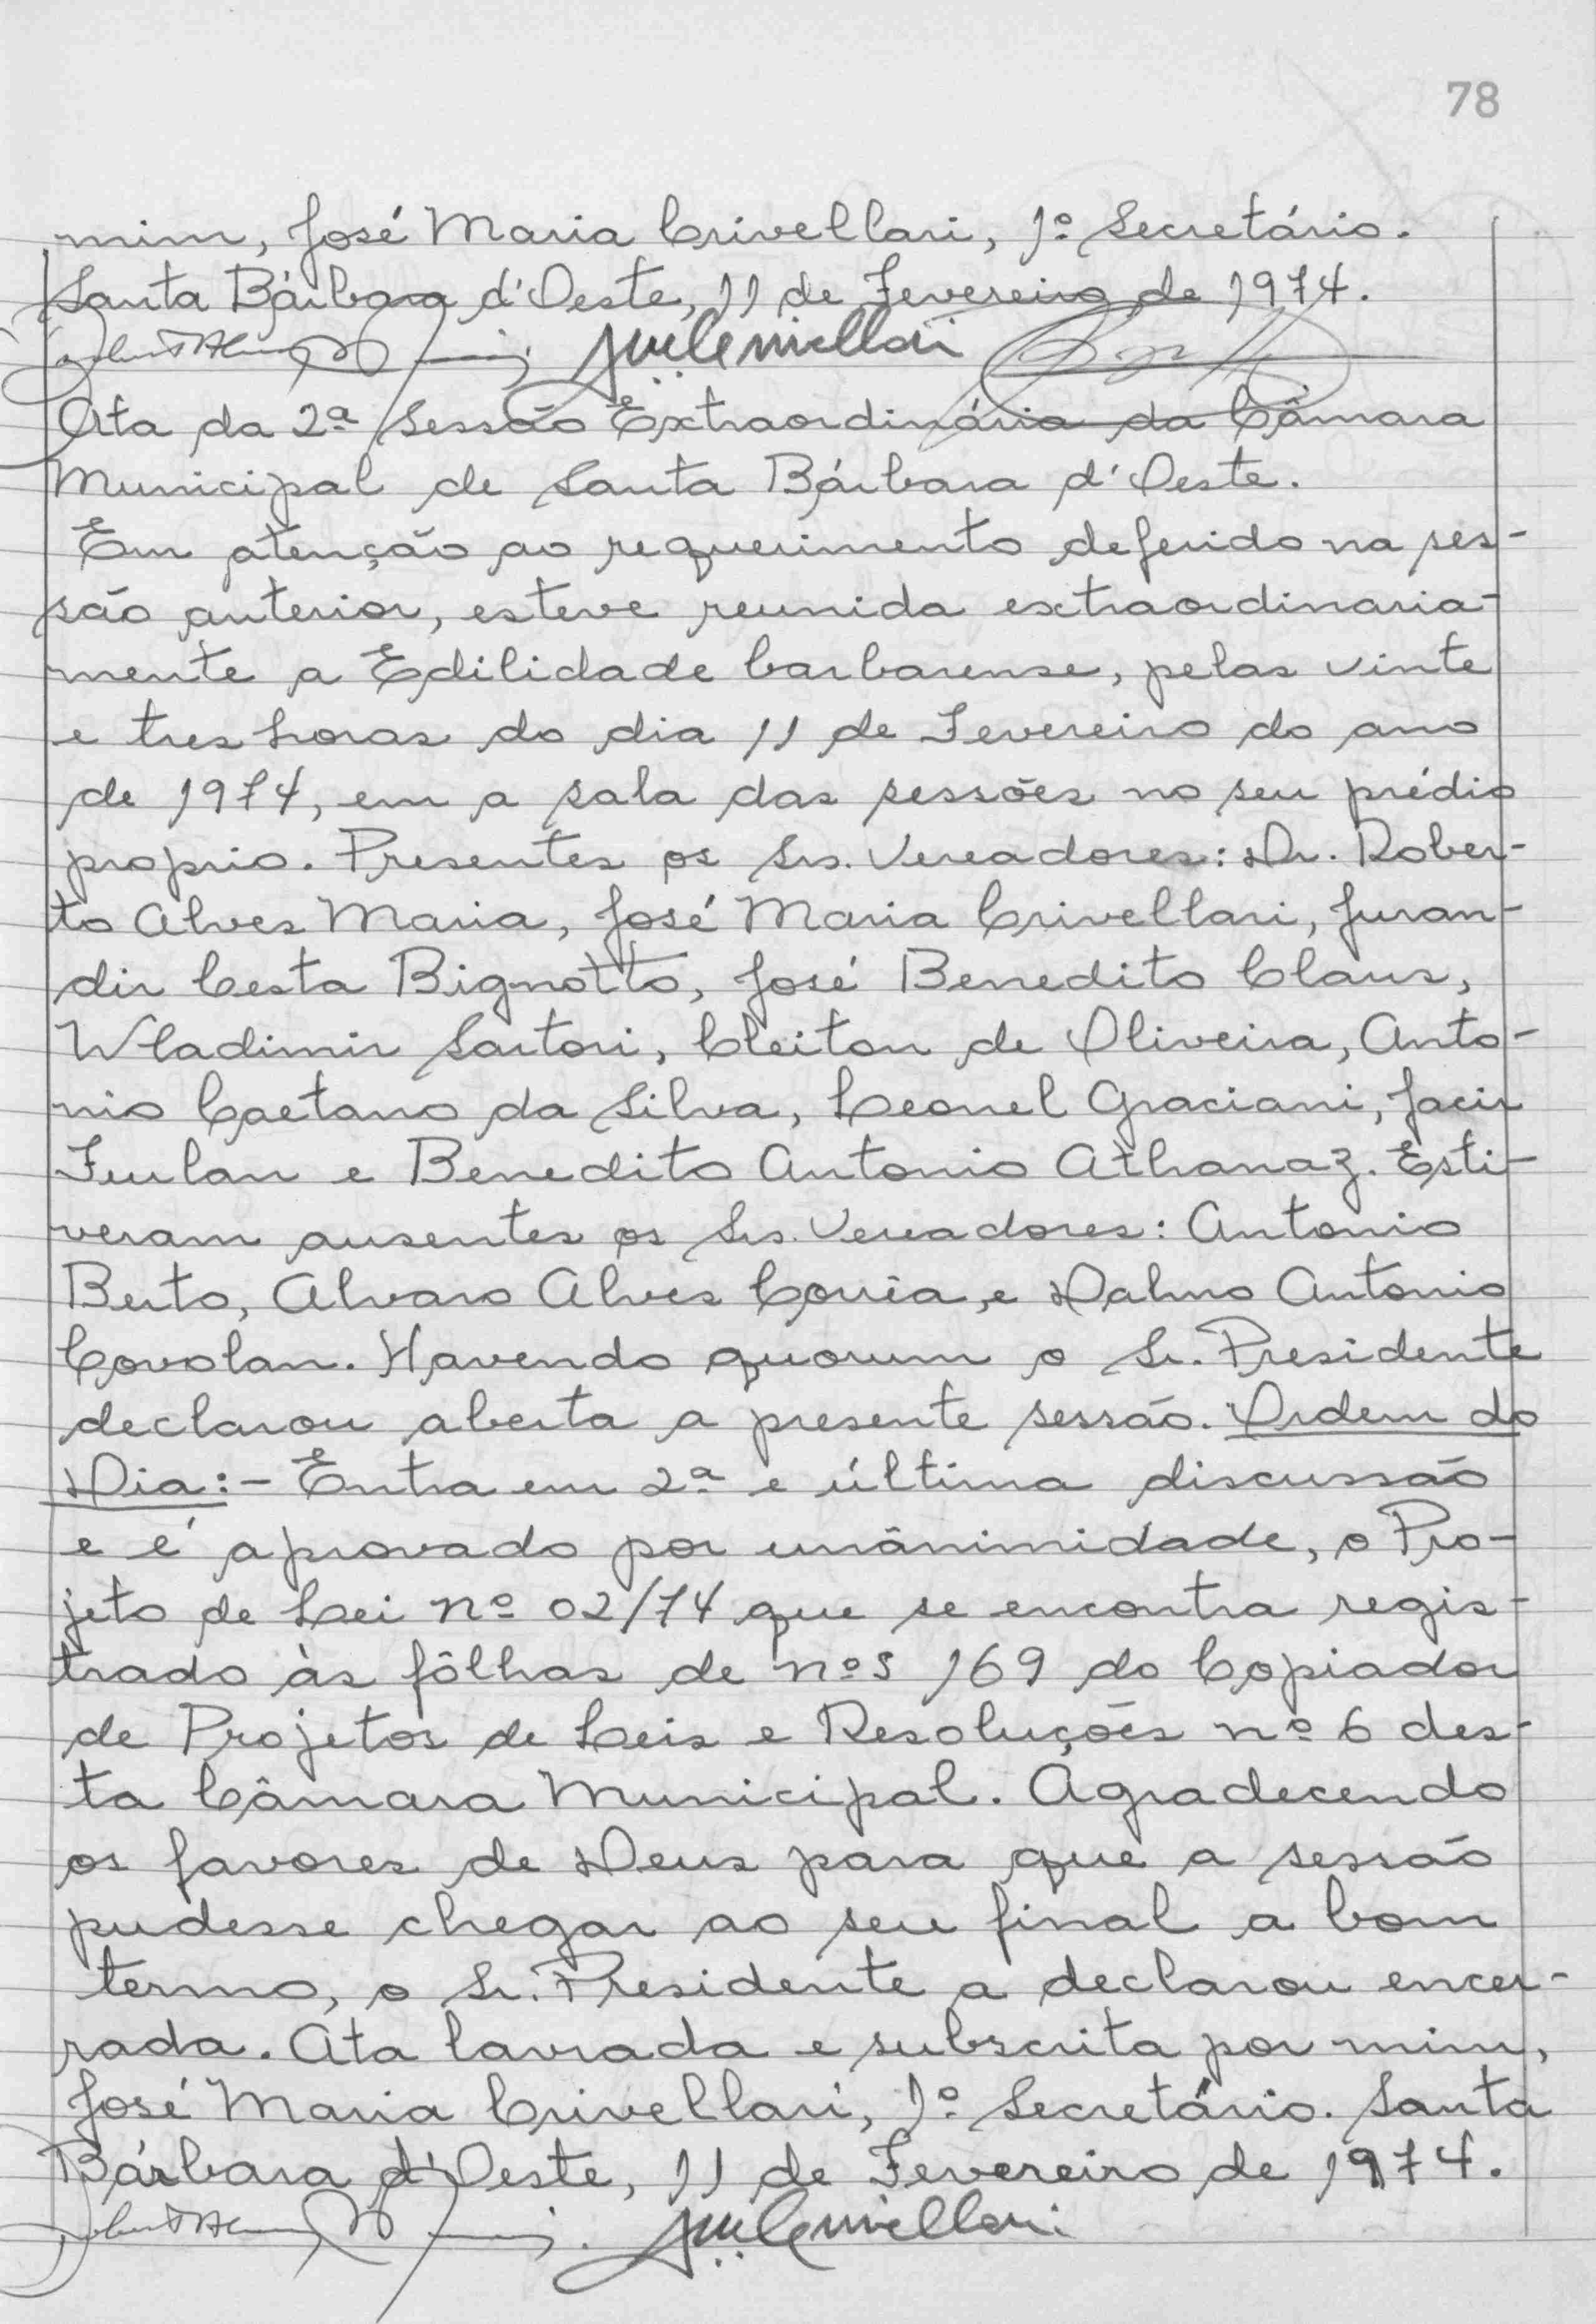 78
mim, José Maria Crivellari, 1º Secretário.
Santa Bárbara d'Oeste, 11 de Fevereiro de 1974.
Ata da 2ª Sessão Extraordinária da Câmara
Municipal de Santa Bárbara d'Oeste.
Em atenção ao requerimento deferido na ses-
são anterior, esteve reunida extraordinaria-
mente a Edilidade barbarense, pelas vinte
e tres horas do dia 11 de Fevereiro do ano
de 1974, em a sala das sessões no seu prédio
proprio. Presentes os Srs. Vereadores: Dr. Rober-
to Alves Maria, José Maria Crivellari, Juran-
dir Cesta Bignotto, José Benedito Claus,
Wladimir Sartori, Cleiton de Oliveira, Anto-
nio Caetano da Silva, Leonel Graciani, Jacir
Furlan e Benedito Antonio Athanaz. Esti-
veram ausentes os Srs. Vereadores: Antonio
Berto, Alvaro Alves Corrêa, e Dalmo Antonio
Covolan. Havendo quorum o Sr. Presidente
declarou aberta a presente sessão. Ordem do
Dia:- Entra em 2ª e última discussão
e é aprovado por unânimidade, o Pro-
jeto de Lei nº 02/74 que se encontra regis-
trado às fôlhas de nºs 169 do Copiador
de Projetos de Leis e Resoluções nº 6 des-
ta Câmara Municipal. Agradecendo
os favores de Deus para que a sessão
pudesse chegar ao seu final a bom
termo, o Sr. Presidente a declarou encer-
rada. Ata lavrada e subscrita por mim,
José Maria Crivellari, 1º Secretário. Santa
Bárbara d'Oeste, 11 de Fevereiro de 1974.